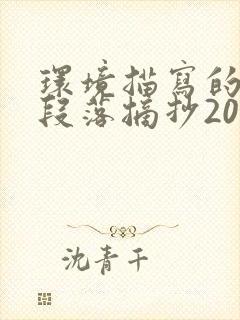 環境描寫的
段落摘抄20
沈青千